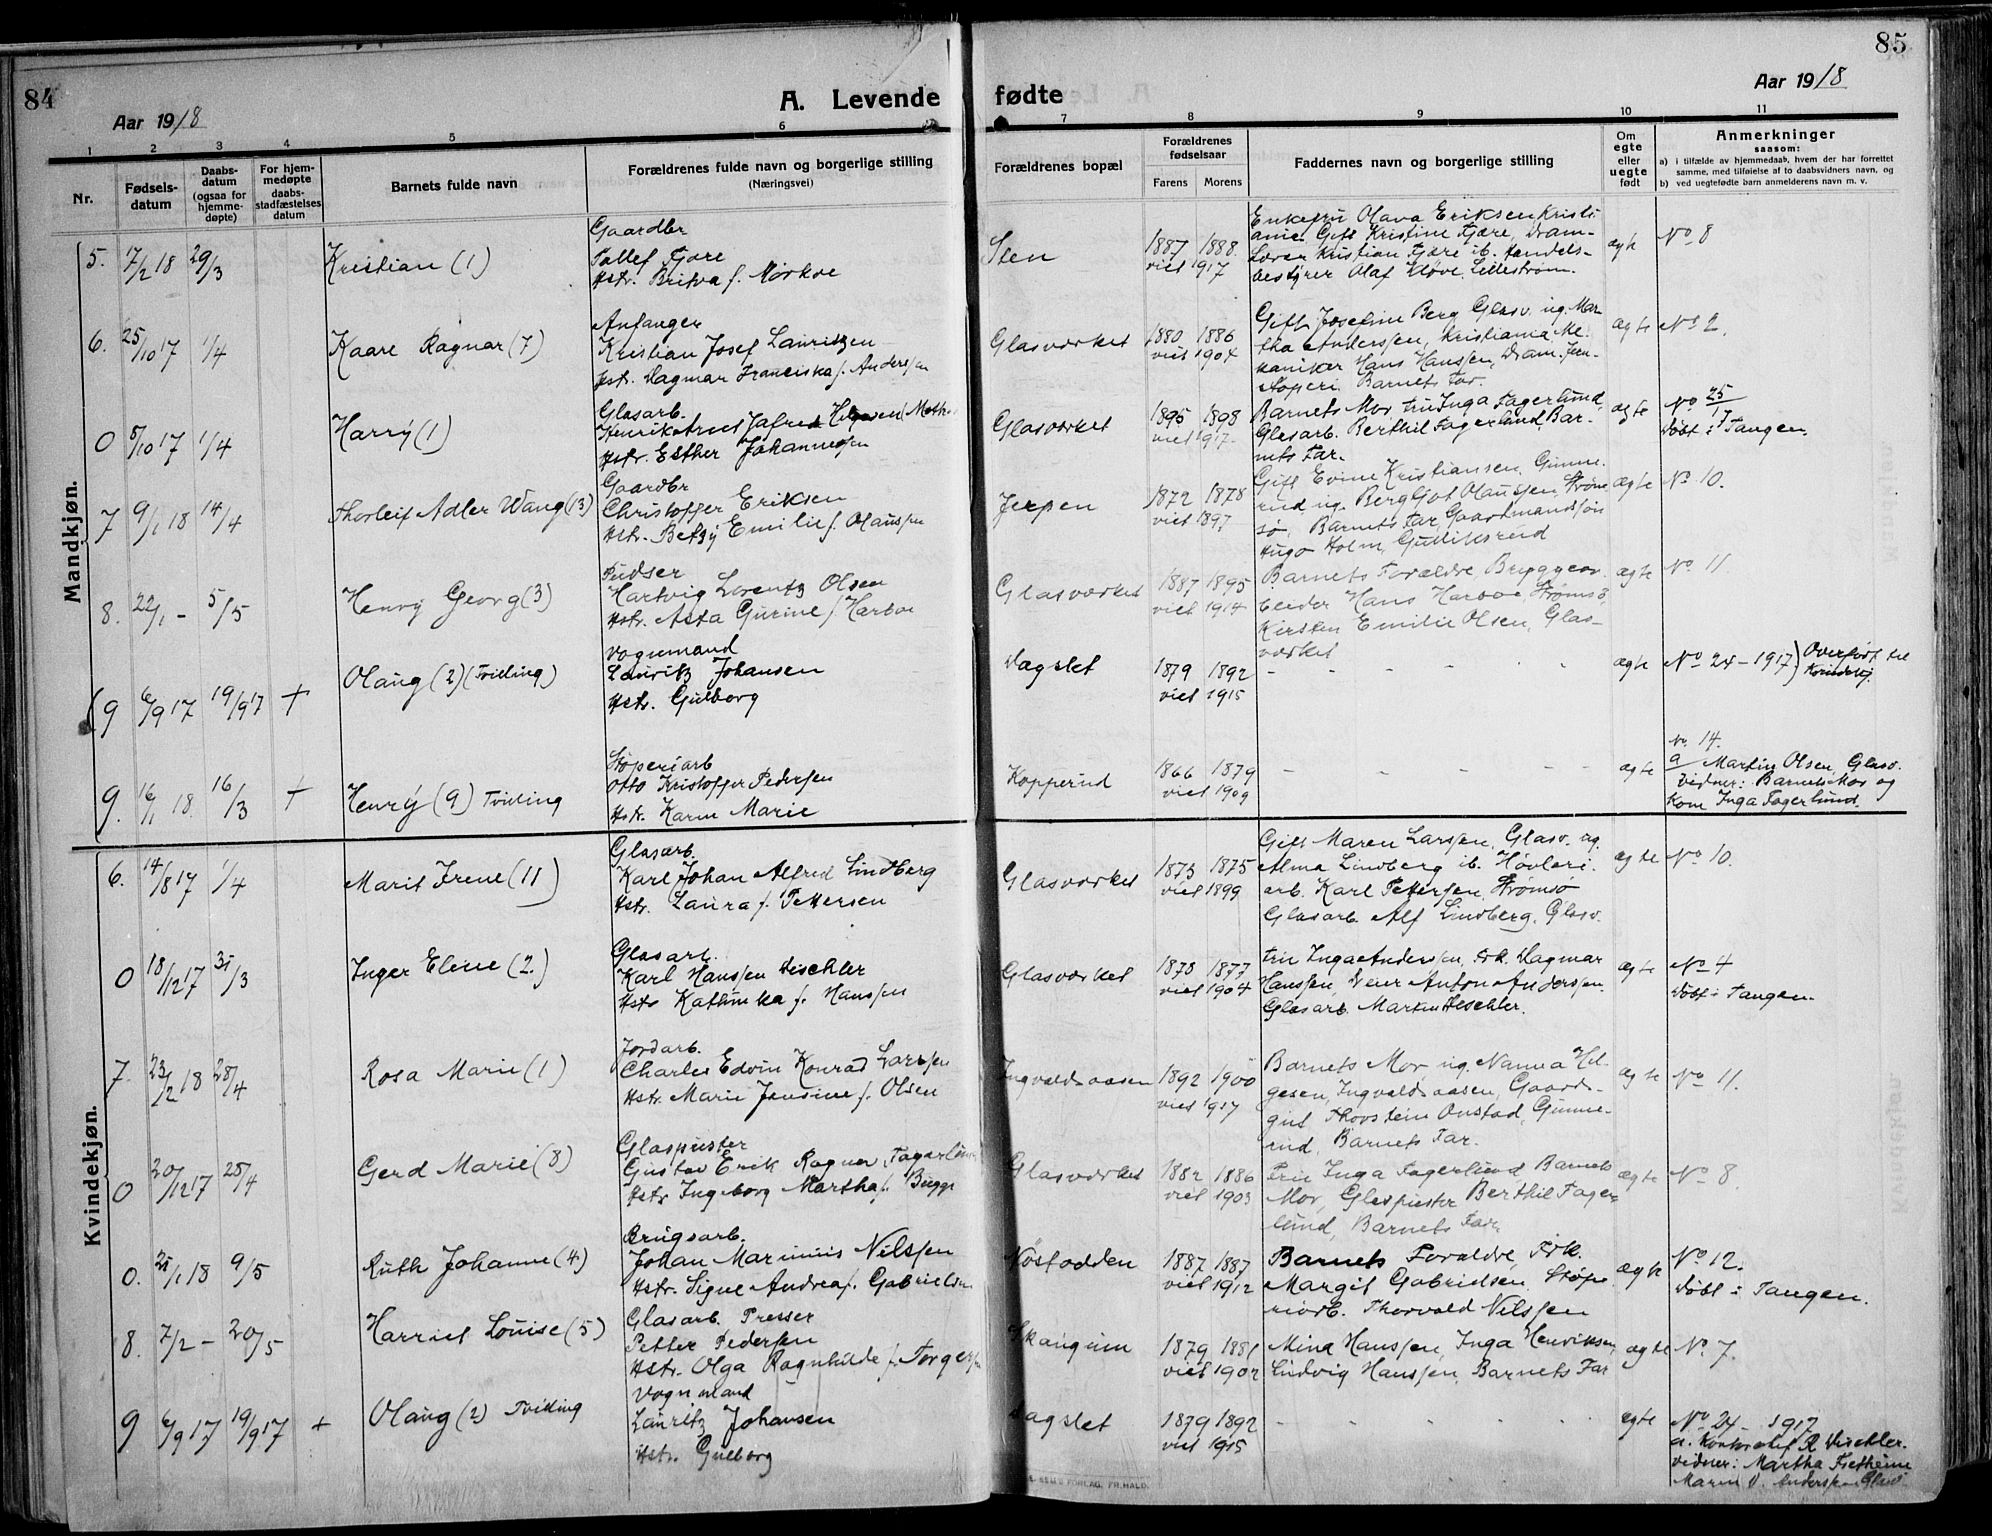 84
Aar 1918
A. Levende
fødte
Aar 1918
85
1 2 3 4 5 6 7 8 9 10 11
Nr.
Fødsels-
datum
Daabs-
datum
(ogsaa for
hjemme-
døpte)
For hjem-
medøpte
daabs-
stadfæstelses
datum
Barnets fulde navn
Forældrenes fulde navn og borgerlige stilling
(Næringsvei)
Forældrenes bopæl
Forældrenes
fødselsaar
Farens Morens
Faddernes navn og borgerlige stilling
Om
egte
eller
uegte
født
Anmerkninger
saasom:
a) i tilfælde av hjemmedaab, hvem der har forrettet
samme, med tilføielse af to daabsvidners navn, og
b) ved uegtefødte barn anmelderens navn m. v.
Mandkjøn.
5. 17/2 18 29/3 Kristian (1)
Gaardbr
Tollef Fjøre
Hstr. Britva f. Mørkve
Sten
1887 1888
viet 1917
Enkefru Olava Eriksen Kristi-
ania Gift Kristine Fjære, Dram-
Lærer Kristian Fjære ib. Handels-
bestyrer Olaf Kløve, Lillestrøm.
ægte
No 8
6. 25/10 17 1/4 Kaare Ragnar (7)
Anfanger
Kristian Josef Lauritzen
Hstr. Dagmar Franciska f. Anderssen
Glasværket
1880 1886
viet 1904
Gift Josefine Berg Glasv. ug. Mar-
tha Anderssen, Kristiania Me-
kaniker Hans Hanssen, Dram. Jern-
støperi. Barnets Far.
ægte
No 2.
0 5/10 17 1/4 Harry (1)
Glasarb.
Hstr. Esther Johannessen
Glasværket
1895 1898
viet 1917
Barnets Mor, fru Inga Fagerlund,
Glasarb. Berthil Fagerlund Bar-
nets Far.
ægte
No 25/17
Døbt i Tangen.
7 9/1 18 14/4 Thorleif Adler Wang (13)
Gaardbr
Christoffer Eriksen
Hstr. Betsy Emilie f. Olaussen
Jerpen
1872 1878
viet 1897
Gift Evine Kristiansen, Gunne-
rud ug. Bergljot Olaussen, Strøm-
sø, Barnets Far, Gaardmandssøn
Hugo Holm, Gulliksrud
ægte
No 10.
8. 22/1 - 5/5 Henry Georg (3)
Pudser
Hartvig Lorentz Olsen
Hstr. Asta Gurine f. Harboe
Glasværket
1887 1895
viet 1914
Barnets Forældre, Bryggear-
beider Hans Harboe Strømsø,
Kirsten Emilie Olsen, Glas-
værket
ægte
No 11.
9 6/9 17 19/9 17 + Olaug (2) (Tvilling)
Vognmand
Lauritz Johansen
Hstr. Gulborg
Dagslet
1879 1892
viet 1915
ægte
No 24 - 1917) Overført til
Kvindekj.
9. 16/1 18. 16/3 + Henry (9) Tvilling
Støperiarb
Otto Kristoffer Pedersen
Hstr. Karen Marie
Kopperud
1866 1879
viet 1909
ægte
No. 14.
a Martin Olsen, Glasv.
Vidner: Barnets Mor og
Kone Inga Fagerlund.
Kvindekjøn.
6. 14/8 17 1/4 Marit Irene (11)
Glasarb.
Karl Johan Alfred Lindberg
Hstr. Laura f. Pettersen
Glasværket
1873 1875
viet 1899
Gift Maren Larssen, Glasv. ug.
Alma Lindberg ib. Høvleri-
arb. Karl Pettersen Strømsø
Glasarb. Alf Lindberg, Glasv.
ægte
No 10.
0 18/12 17 31/3 Inger Eline (2.)
Glasarb.
Karl Hanssen Tischler
Hstr Kathinka f. Hanssen
Glasværket
1878 1877
viet 1904
Fru Inga Anderssen, Frk. Dagmar
Hanssen, Dreier Anton Anderssen.
Glasarb. Martin Tischler.
ægte
No 4
Døbt i Tangen.
7. 23/2 18 28/4 Rosa Marie (1)
Jordarb.
Charles Edvin Konrad Larssen
Hstr. Marie Jensine f. Olsen
Ingvaldsaasen
1892 1900
viet 1917
Barnets Mor, ug. Nanna Hel-
gesen, Ingvaldsaasen, Gaard-
gut Thorstein Onstad, Gunne-
rud, Barnets Far.
ægte
No 11.
0 20/12 17 28/4 Gerd Marie (8)
Glaspuster
Gustav Erik Ragnar Fagerlund
Hstr Ingeborg Martha f. Bugge
Glasværket
1882 1886
viet 1903
Fru Inga Fagerlund Barnets
Mor, Glaspuster Berthil Fager-
lund, Barnets Far.
ægte
No 8.
0. 21/1 18 9/5 Ruth Johanne (4)
Brugsarb.
Johan Marinius Nilssen
Hstr. Signe Andrea f. Gabrielsen
Nøstodden
1887 1887
viet 1912
Barnets Forældre, Frk.
Margit Gabrielsen, Støpe-
riarb. Thorvald Nilssen
ægte
No 12.
Døbt i Tangen.
8. 7/2 - 20/5 Harriet Louise (5)
Glasarb. Presser
Petter Pedersen
Hstr. Olga Ragnhilde f. Torgersen
Skangum
1879 1881
viet 1902
Mina Hanssen, Inga Henriksen,
Ludvig Hanssen, Barnets Far
ægte
No 7.
9 6/9 17 19/9 17 + Olaug (2) Tvilling
Vognmand
Lauritz Johansen
Hstr. Gulborg
Dagslet
1879 1892
viet 1915
ægte
No 24 - 1917
a. Kontorchef R Tischler.
Vidner: Martha Fretheim
FORLAG, FR.HALD.